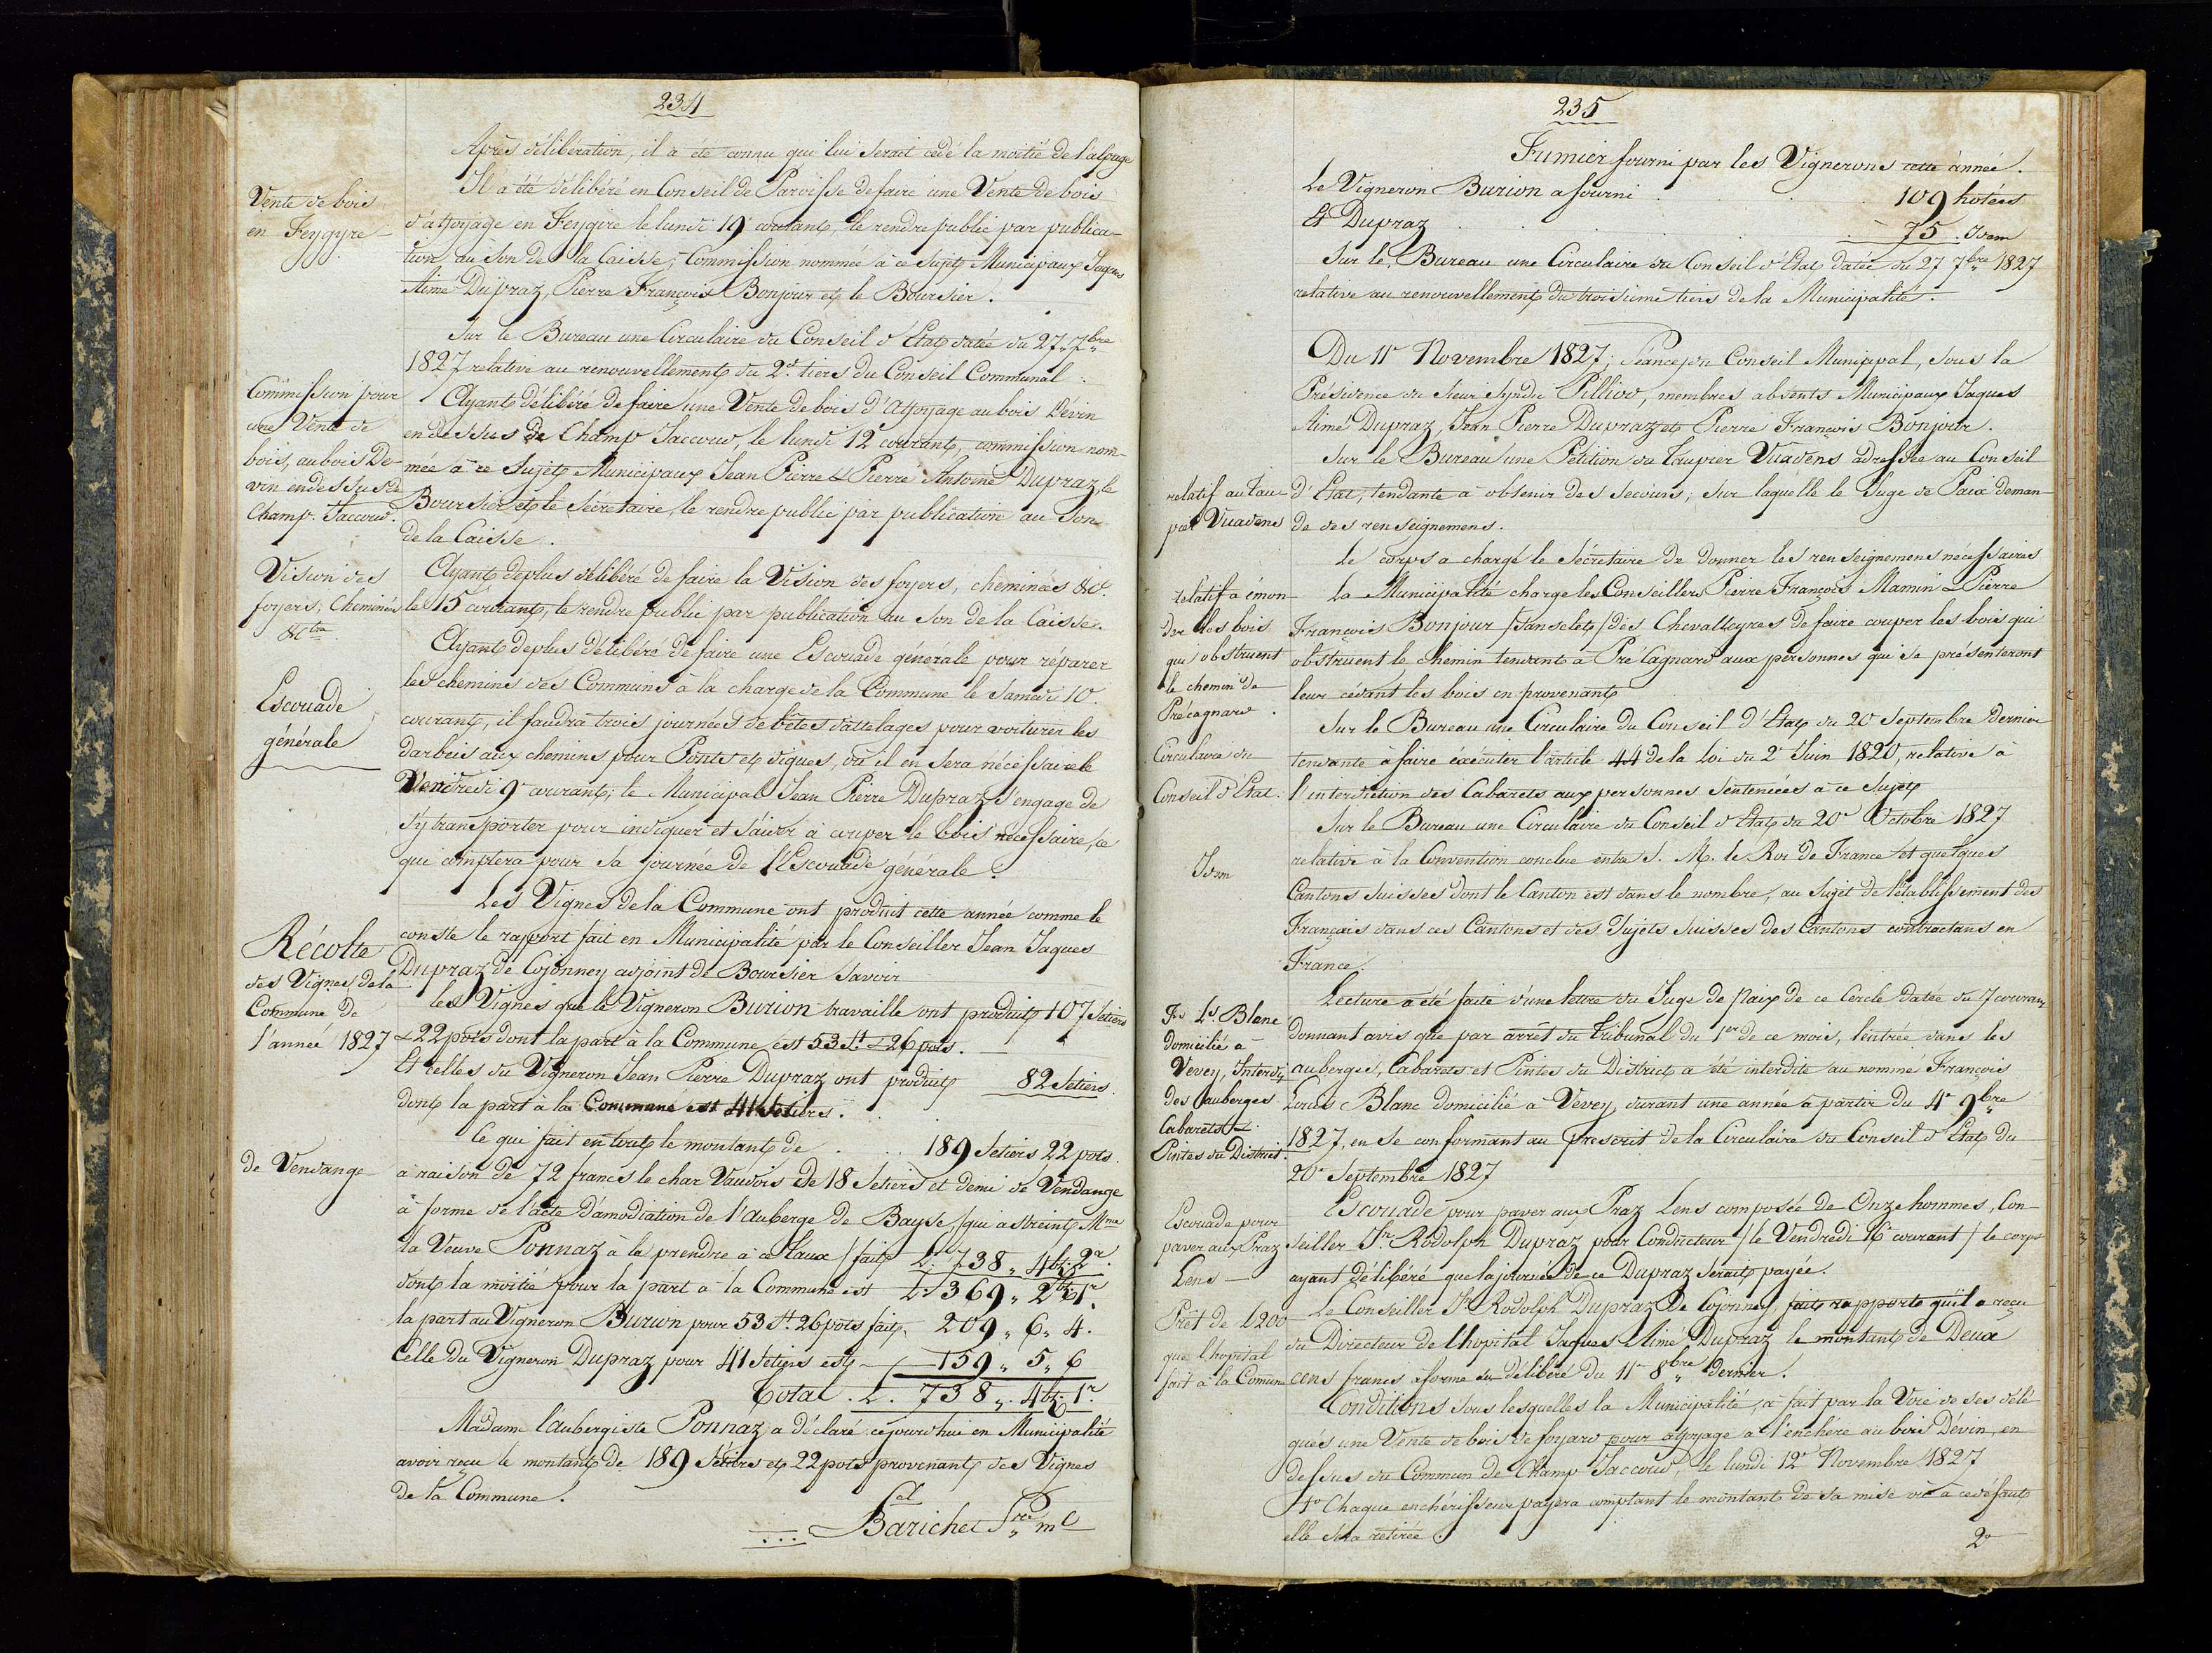 234
Après délibération, il a été connu qui lui serait cédé la moitié de l'alpage
Vente de bois
en Feygire
Il a été délibéré en Conseil de Paroisse de faire une Vente de bois
d'affoyage en Feygire le lundi 19 courant, le rendre public par publica-
tion au Son de la Caisse; Commission nommée à ce Sujet Municipaux Jaques
Aimé Dupraz, Pierre François Bonjour et le Boursier.
Sur le Bureau une Circulaire du Conseil d'Etat datée du 27 7bre
1827 relative au renouvellement du 2d tiers du Conseil Communal.
Commission pour
une Vente de
bois, au bois De-
vin en dessus de
Champ-Jaccoud.
Ayant délibéré de faire une Vente de bois d'affoyage au bois Dévin
en dessus de Champ Jaccoud, le lundi 12 courant, commission nom-
mée à ce Sujet Municipaux Jean Pierre & Pierre Antoine Dupraz, le
Boursier et le Sécretaire, le rendre public par publication au Son
de la Caisse.
Vision des
foyers; Cheminées
&ctra
Ayant deplus délibéré de faire la Vision des foyers, cheminées &ct
le 15 courant, le rendre public par publication au Son de la Caisse.
Escouade
générale
Ayant deplus délibéré de faire une Escouade générale pour réparer
les chemins des Communs à la charge de la Commune le Samedi 10
courant, il faudra trois journées de bêtes d'attelages pour voiturer les
darbeis aux chemins pour Ponts et digues, où il en sera nécessaire le
Vendredi 9 courant; le Municipal Jean Pierre Dupraz s'engage de
s'y transporter pour indiquer et s'aider à couper le bois nécessaire, ce
qui comptera pour sa journée de l'Escouade générale.
Récolte
des Vignes de la
Commune de
l'année 1827
Les Vignes de la Commune ont produit cette année comme le
conste le raport fait en Municipalité par le Conseiller Jean Jaques
Dupraz de Cojonney adjoint de Boursier Savoir
les Vignes que le Vigneron Burion travaille ont produit 107 Setiers
& 22 pots dont la part à la Commune est 53 St & 26 pots.
Et celles du Vigneron Jean Pierre Dupraz ont produit 82 Setiers.
dont la part à la Commune est 41 Setiers.
Ce qui fait en tout le montant de . . . 189 Setiers 22 pots.
de Vendange
à raison de 72 francs le char Vaudois de 18 Setiers et demi de Vendange
à forme de l'acte d'amodiation de l'Auberge de Bayse, (qui astreint Mme
la Veuve Ponnaz à la prendre à ce taux) fait L. 738 " 4 bz 2 r.
dont la moitié pour la part à la Commune est L. 369 " 2 bz 1 r.
la part au Vigneron Burion pour 53 St. 26 pots fait. 209 " 6 " 4.
Celle du Vigneron Dupraz pour 41 Setiers est 159 " 5 " 6
Total . L. 738 " 4 bz 1 r.
Madame l'aubergiste Ponnaz a déclaré cejourd'hui en Municipalité
avoir reçu le montant de 189 Setiers et 22 pots provenant des Vignes
de la Commune.
Barichet
235
Fumier fourni par les Vignerons cette année.
Le Vigneron Burion a fourni . . . 109 hotées
Et Dupraz . . . 75 . Idem
Sur le Bureau une Circulaire du Conseil d'Etat datée du 27 7bre 1827
relative au renouvellement du troisieme tiers de la Municipalité.
Du 11e Novembre 1827; Séance du Conseil Municipal, sous la
Présidence du Sieur Syndic Pilliod, membres absents Municipaux Jaques
Aimé Dupraz, Jean Pierre Dupraz et Pierre François Bonjour.
relatif au tau-
pier Vuadens
Sur le Bureau une Pétition du Taupier Vuadens adressée au Conseil
d'Etat, tendante à obtenir des secours; sur laquelle le Juge de Paix deman-
de des renseignemens.
Le corps a chargé le Sécrétaire de donner les renseignemens necessaires
relatif à émon-
der les bois
qui obstruent
le chemin de
Précagnard.
La Municipalité charge les Conseillers Pierre François Mamin & Pierre
François Bonjour (Danselet) des Chevalleyres de faire couper les bois qui
obstruent le chemin tendant à Pré Cagnard aux personnes qui se présenteront
leur cédant les bois en provenant
Circulaire du
Conseil d'Etat.
Sur le Bureau une Circulaire du Conseil d'Etat du 20 Septembre dernier
tendante à faire éxécuter l'article 44 de la Loi du 2e Juin 1820, relative à
l'interdiction des Cabarets aux personnes Sentenciées à ce Sujet
Idem
Sur le Bureau une Circulaire du Conseil d'Etat du 20e Octobre 1827
relative à la Convention conclue entre S. M. le Roi de France et quelques
Cantons suisses dont le Canton est dans le nombre, au Sujet de l'établissement des
Français dans ces Cantons et des Sujets suisses des Cantons contractans en
France.
Fs Ls Blanc
domicilié à
Vevey, Interdit
des Auberges
Cabarets &
Pintes du District.
Lecture a été faite d'une lettre du Juge de Paix de ce Cercle datée du 7 courant
donnant avis que par arrêt du tribunal du 1er de ce mois, l'entrée dans les
auberges, Cabarets et Pintes du District a été interdite au nommé François
Louis Blanc domicilié à Vevey, durant une année à partir du 4e 9bre
1827, en se conformant au prescrit de la Circulaire du Conseil d'Etat du
20e Septembre 1827
Escouade pour
paver aux Praz
Lens
Escouade pour paver aux Praz Lens composée de Onze hommes, Con-
seiller Fs Rodolph Dupraz pour Conducteur (le Vendredi 16 courant) le corps
ayant délibéré que la journée de ce Dupraz serait payée.
Prêt de L200
que l'hopital
fait à la Comune
Le Conseiller Fs Rodolph Dupraz de Cojonney, fait rapporte qu'il a reçu
du Directeur de l'hopital Jaques Aimé Dupraz le montant de Deux
cens francs à forme du délibéré du 11e 8bre dernier.
Conditions sous lesquelles la Municipalité, a fait par la Voie de ses délé-
gués une Vente de bois de foyard pour affoyage à l'enchère au bois Dévin, en
dessus du Commun de Champ Jaccoud, le lundi 12e Novembre 1827
1o Chaque enchérisseur payera comptant le montant de sa mise où à ce défaut
elle sera retirée.
2o